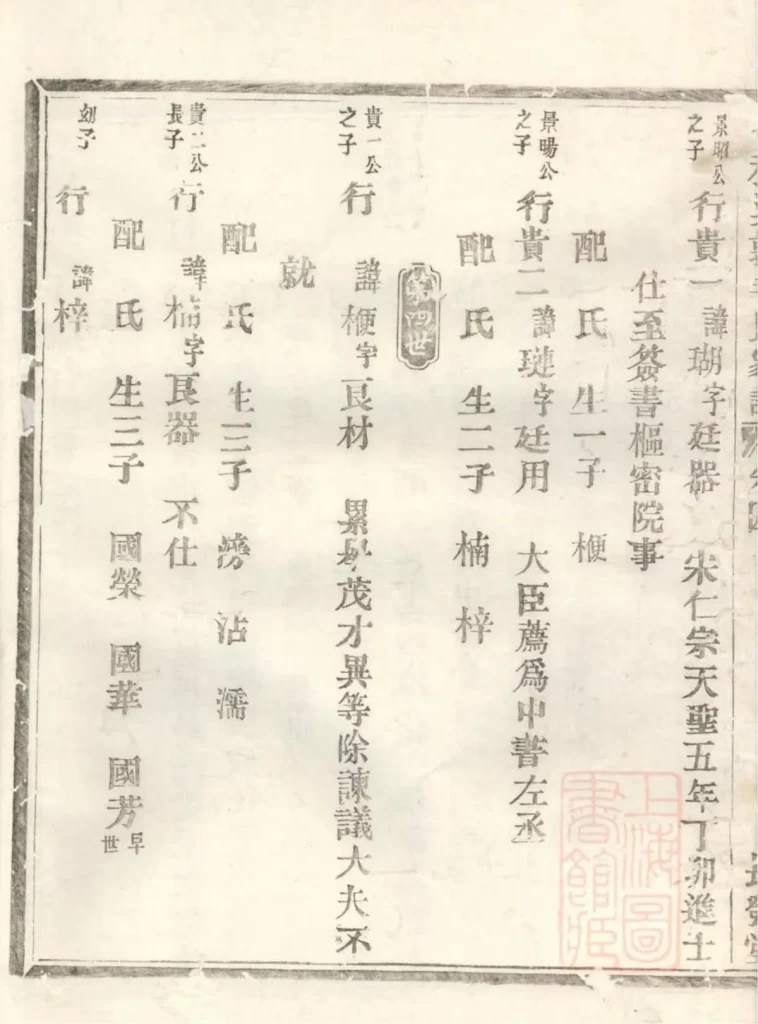 景昭公之子 行貴一 諱瑚字廷器 宋仁宗天聖五年丁卯進士
仕至簽書樞密院事
配 氏 生一子 楩
景暘公之子 行貴二 諱璉字廷用 大臣薦爲中書左丞
配 氏 生二子 楠 梓
第四世
貴一公之子 行 諱楩字良材 累舉茂才異等除諫議大夫不
就
配 氏 生三子 滂 沾 濡
貴二公長子 行 諱楠字良器 不仕
配 氏 生三子 國榮 國華 國芳早世
幼子 行 諱梓
上海圖書館藏